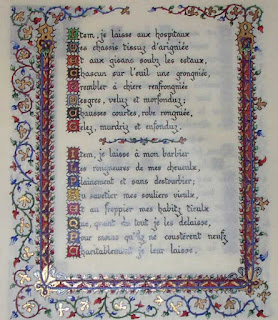 Item, je laisse aux hospitaux
Mes chassis tissuz d'arigniée
Et aux gisans soubz les estaux,
Chascun sur l'œil une grongniée,
Trembler a chiere renfrongniée
Mesgres, veluz et morfonduz;
Chausses courtes, robe rongniée,
Gelez, murdriz et enfonduz.
Item, je laisse à mon barbier
Les rongneures de mes cheveulx,
Plainement et sans destourbier;
Au savetier mes souliers vieulx,
Et au freppier mes habitz tieulx
Que, quant du tout je les delaisse,
Pour moins qu'ilz ne coustèrent neufz
Charitablement je leur laisse.